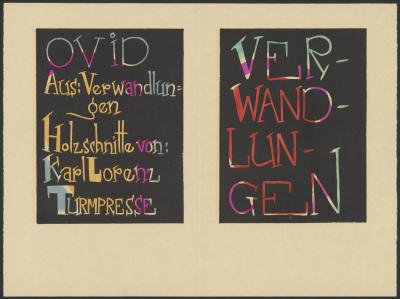 OVID
Aus: Verwandlun=
gen
Holzschnitte von:
Karl Lorenz
TURMPRESSE
VER-
WAND-
LUN-
GEN